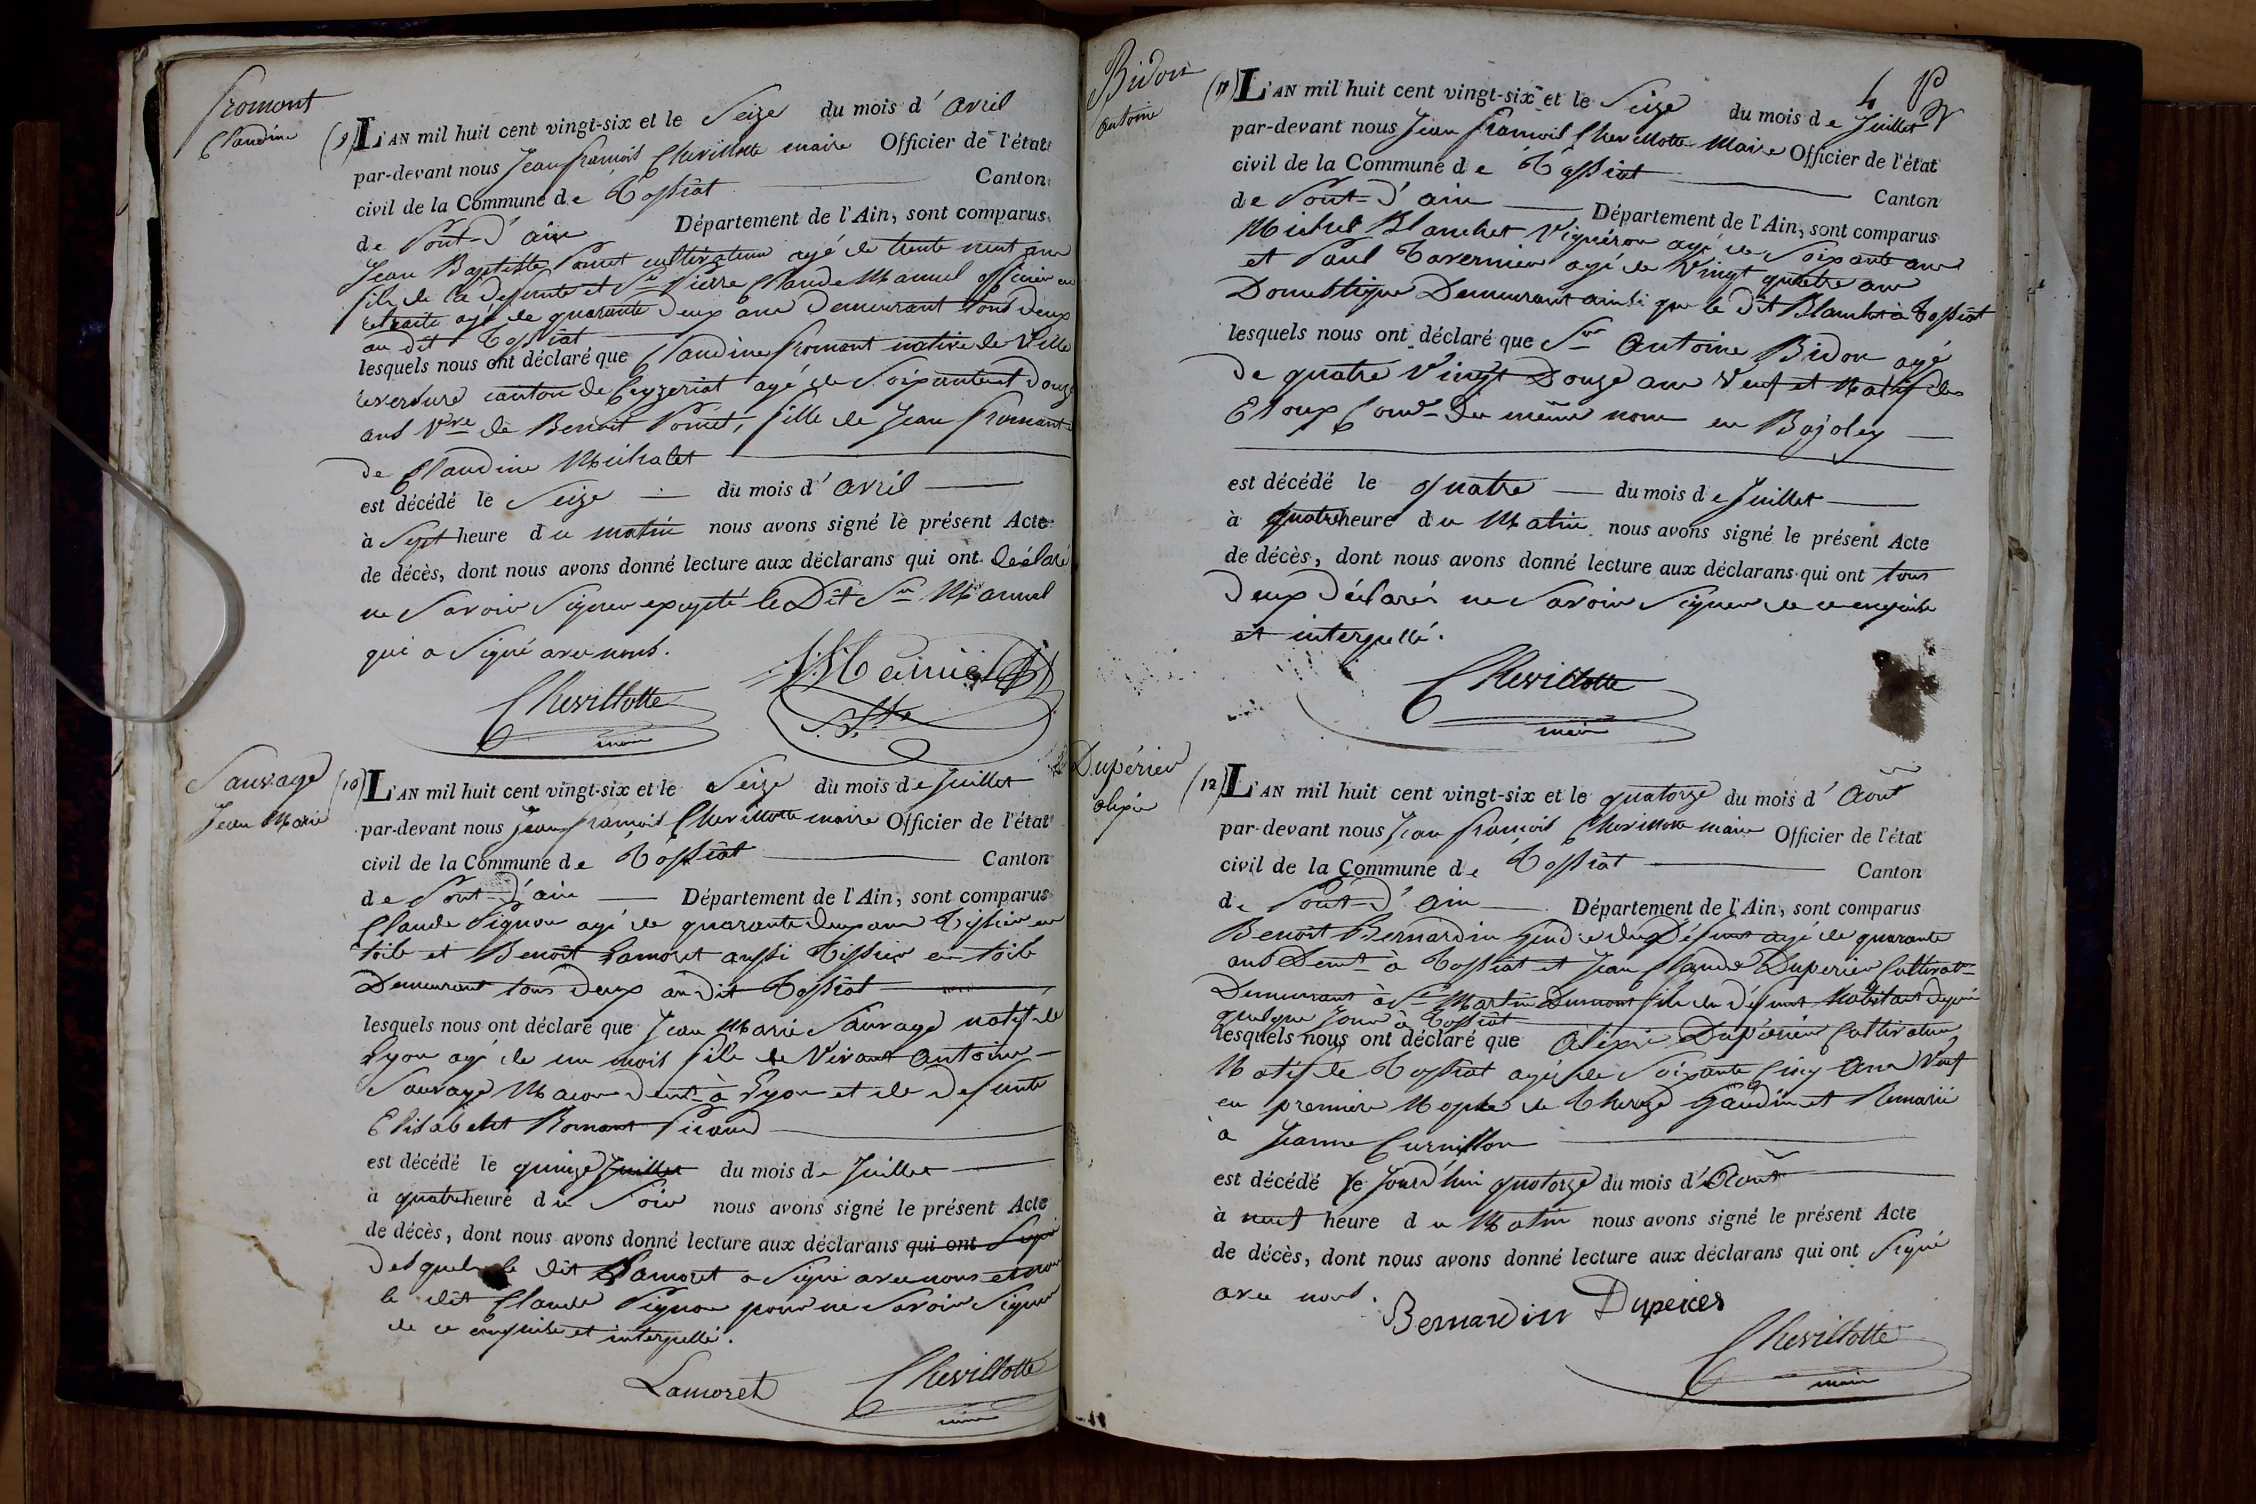 fromont
Claudine
(9) L'AN mil huit cent vingt-six et le Seize du mois d' avril
par-devant nous Jean françois Chevillotte maire Officier de l'état
civil de la Commune de Tossiat Canton
de Pont-d'ain Département de l'Ain, sont comparus
Jean Baptiste Poncet cultivateur agé de trente neuf ans
fils de la defunte et Sr Pierre Claude Manuel officier en
retraite agé de quarante deux ans Demeurant tous deux
au dit Tossiat
lesquels nous ont déclaré que Claudine fromont native de Ville
reversure canton de Ceyzeriat agé de Soixante et douze
ans Vve de Benoit Poncet, fille de Jean fromont
de Claudine Michalet
est décédé le Seize du mois d' avril
à Sept heure du matin nous avons signé le présent Acte
de décès, dont nous avons donné lecture aux déclarans qui ont déclaré
ne Savoir Signer excepté le Dit Sr Manuel
qui a Signé avec nous.
Chevillotte
maire
Sauvage
Jean Marie
(10) L'AN mil huit cent vingt-six et le Seize du mois de Juillet
par-devant nous Jean françois Chevillotte maire Officier de l'état
civil de la Commune de Tossiat Canton
de Pont-d'ain Département de l'Ain, sont comparus
Claude Pignon agé de quarante deux ans Tissier en
toile et Benoit Lamoret aussi Tissier en toile
Demeurant tous deux au dit Tossiat
lesquels nous ont déclaré que Jean Marie Sauvage natif de
Lyon agé de un mois fils de Vivant Antoine
Sauvage Macon demt à Lyon et de defunte
Elisabeht Romant Picand
est décédé le quinze Juillet du mois de Juillet
à quatre heure du Soir nous avons signé le présent Acte
de décès, dont nous avons donné lecture aux déclarans qui ont Signé
Desquels le dit Lamoret a Signé avec nous et non
le dit Claude Pignon pour ne Savoir Signer
de ce enquis et interpellé.
Lamoret Chevillotte
maire
Bidon
Antoine
(11) L'AN mil huit cent vingt-six et le Seize du mois de Juillet
par-devant nous Jean françois Chevillotte Maire Officier de l'état
civil de la Commune de Tossiat Canton
de Pont-d'ain Département de l'Ain, sont comparus
Michel Blanchet Vigneron agé de Soixante ans
et Paul Tavernier agé de Vingt quatre ans
Domestique Demeurant ainsi que le dit Blanchet à Tossiat
lesquels nous ont déclaré que Sr Antoine Bidon agé
de quatre Vingt Douze ans Veuf et Natif des
Eloux Comne du même nom en Bojoley
est décédé le quatre du mois de Juillet
à quatre heure du Matin nous avons signé le présent Acte
de décès, dont nous avons donné lecture aux déclarans qui ont tous
deux déclarés ne Savoir Signer de ce enquis
et interpellé.
Chevillotte
maire
Dupérier
alexie
(12) L'AN mil huit cent vingt-six et le quatorze du mois d' Août
par-devant nous Jean françois Chevillotte maire Officier de l'état
civil de la Commune de Tossiat Canton
de Pont-d'ain Département de l'Ain, sont comparus
Benoit Bernardin Gendre du Défunt agé de quarante
ans Demt à Tossiat et Jean Claude Duperier Cultivatr
Demeurant à St Martin Dumont fils du défunt habitant depuis
quelque Jour à Tossiat
lesquels nous ont déclaré que Alexie Dupérier Cultivateur
Natif de Tossiat agé de Soixante Cinq Ans Veuf
en premiere Nopce de Therese Gaudin et Remarié
a Jeanne Curnillon
est décédé ce Jourd'hui quatorze du mois d' Août
à neuf heure du Matin nous avons signé le présent Acte
de décès, dont nous avons donné lecture aux déclarans qui ont Signé
avec nous.
Bernardin Duperier
Chevillotte
maire